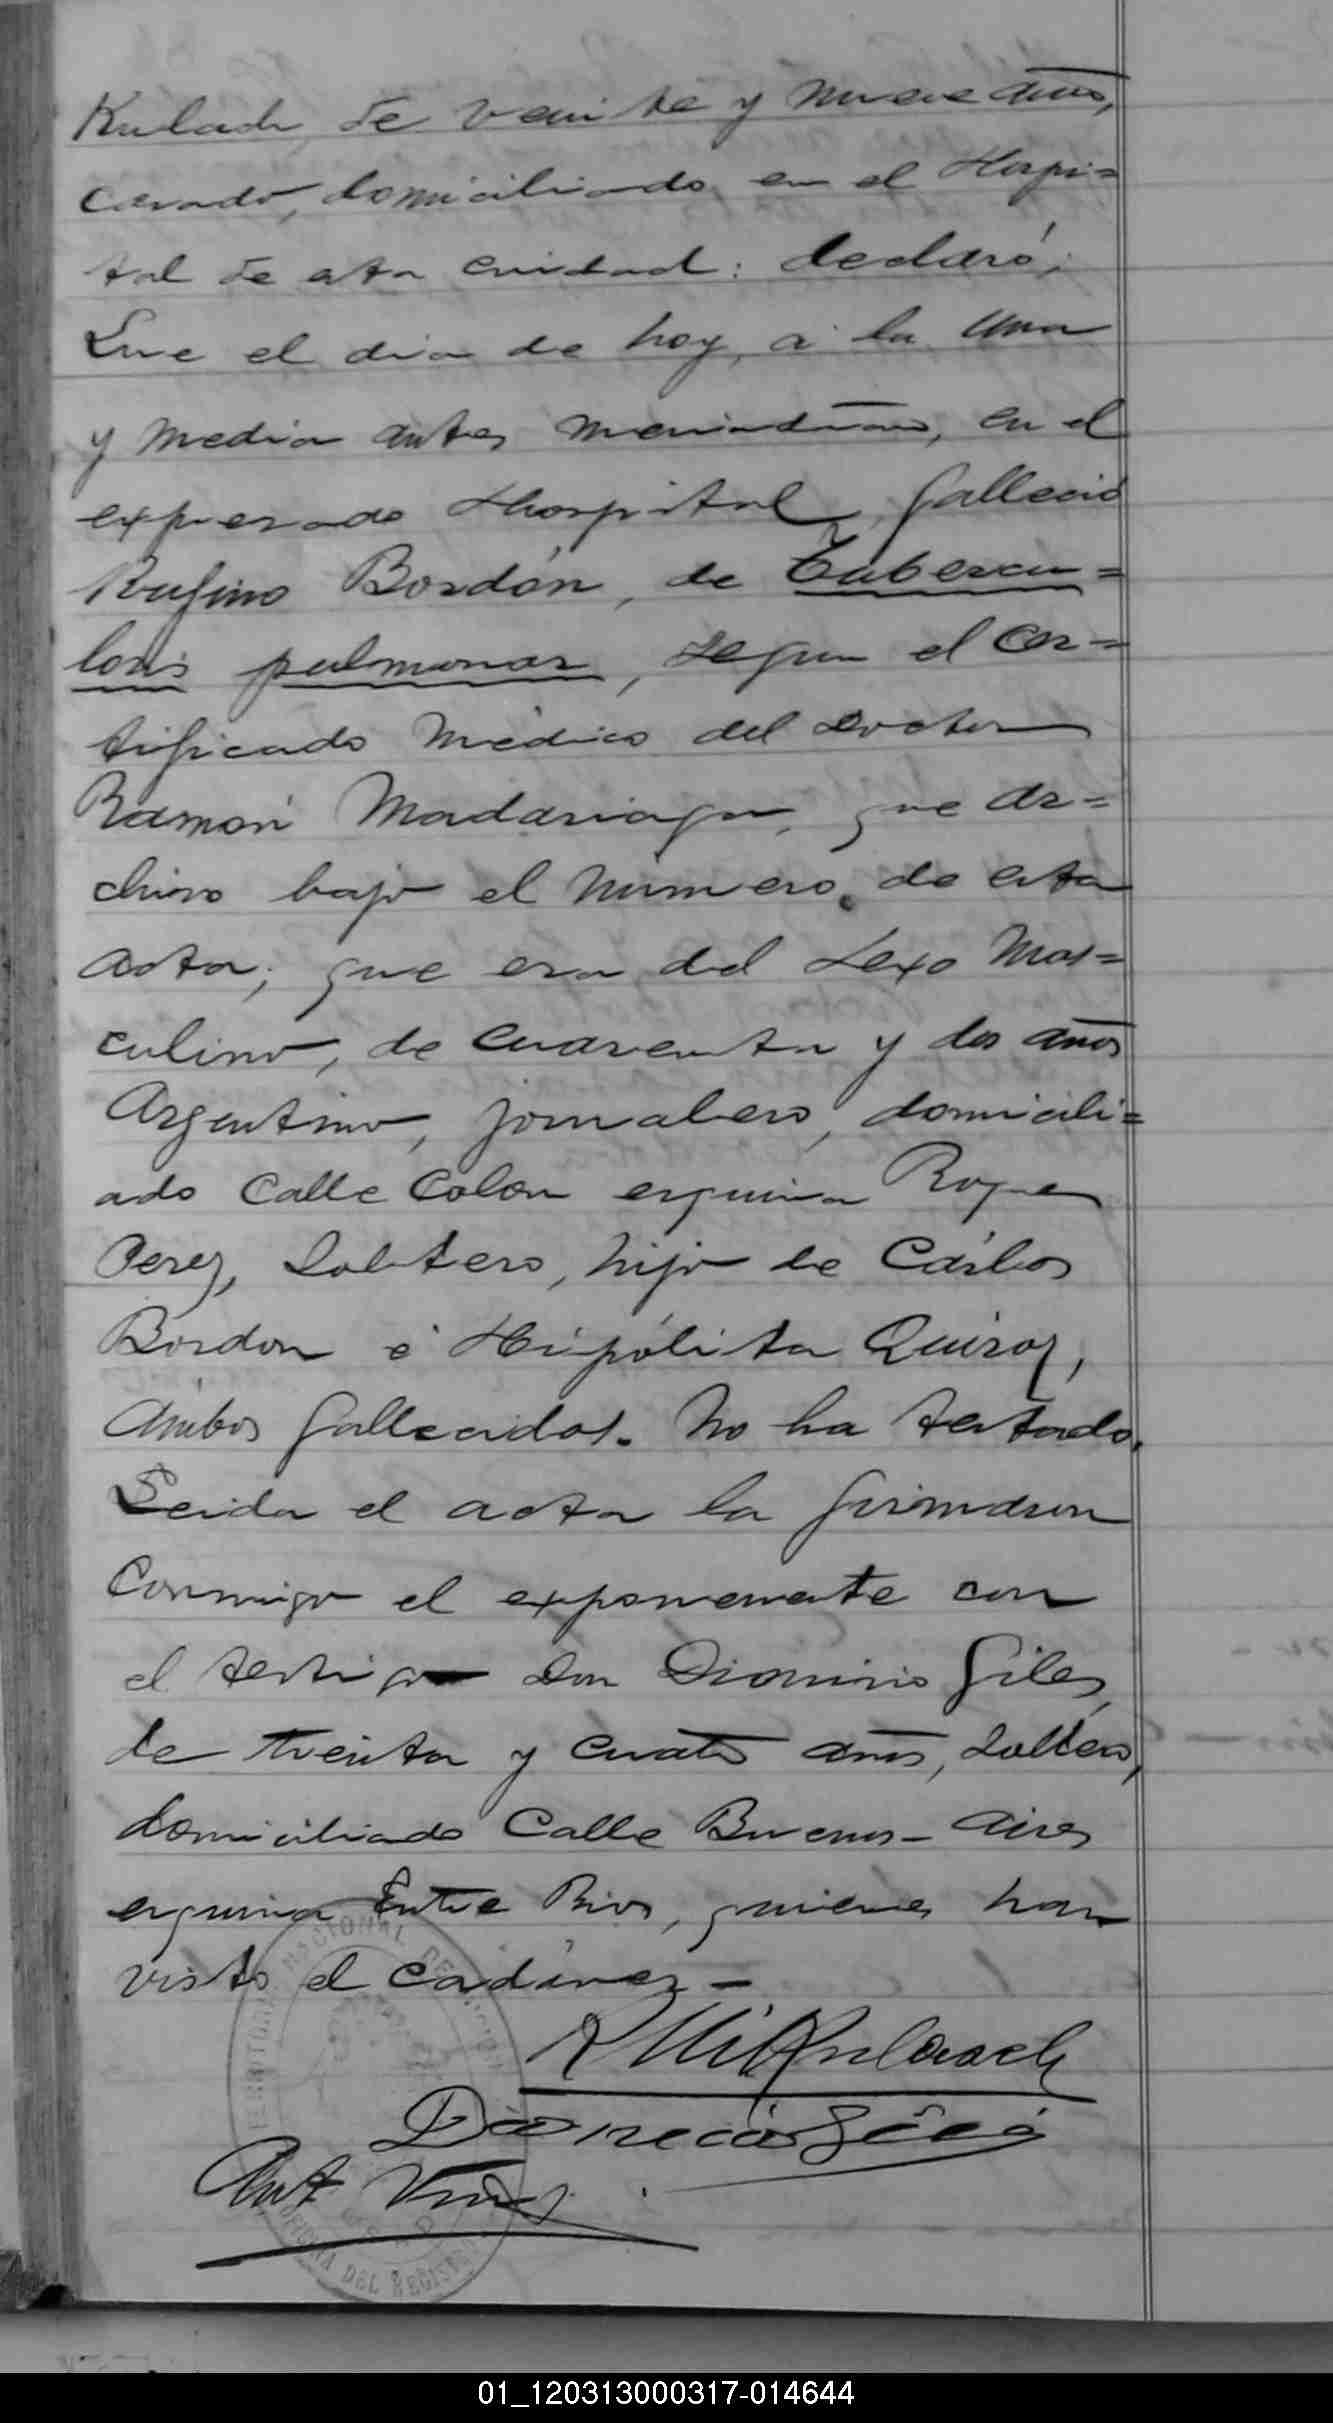 Kulach, de veinte y nueve años,
casado, domiciliado en el Hospi=
tal de esta ciudad: declaró;
Que el dia de hoy, a la una
y media antes meridiano, en el
expresado Hospital, falleció
Rufino Bordón, de Tubercu=
losis pulmonar, segun el cer=
tificado médico del Doctor
Ramón Madariaga, que ar=
chivo bajo el número de esta
acta; que era del sexo mas=
culino, de cuarenta y dos años
Argentino, jornalero, domicili=
ado Calle Colon esquina Roque
Perez, soltero, hijo de Cárlos
Bordon é Hipólita Quiroz,
ámbos fallecidos. No ha testado.
Leida el acta la firmaron
conmigo el exponente con
el testigo Don Dionisio Giles,
de treinta y cuatro años, soltero,
domiciliado Calle Buenos-Aires
esquina Entre Rios, quienes han
visto el cadáver -
Dionicio Giles
Ant
TERRITORIO NACIONAL DE MISIONES
OFICINA DEL REGISTRO
01_120313000317-014644